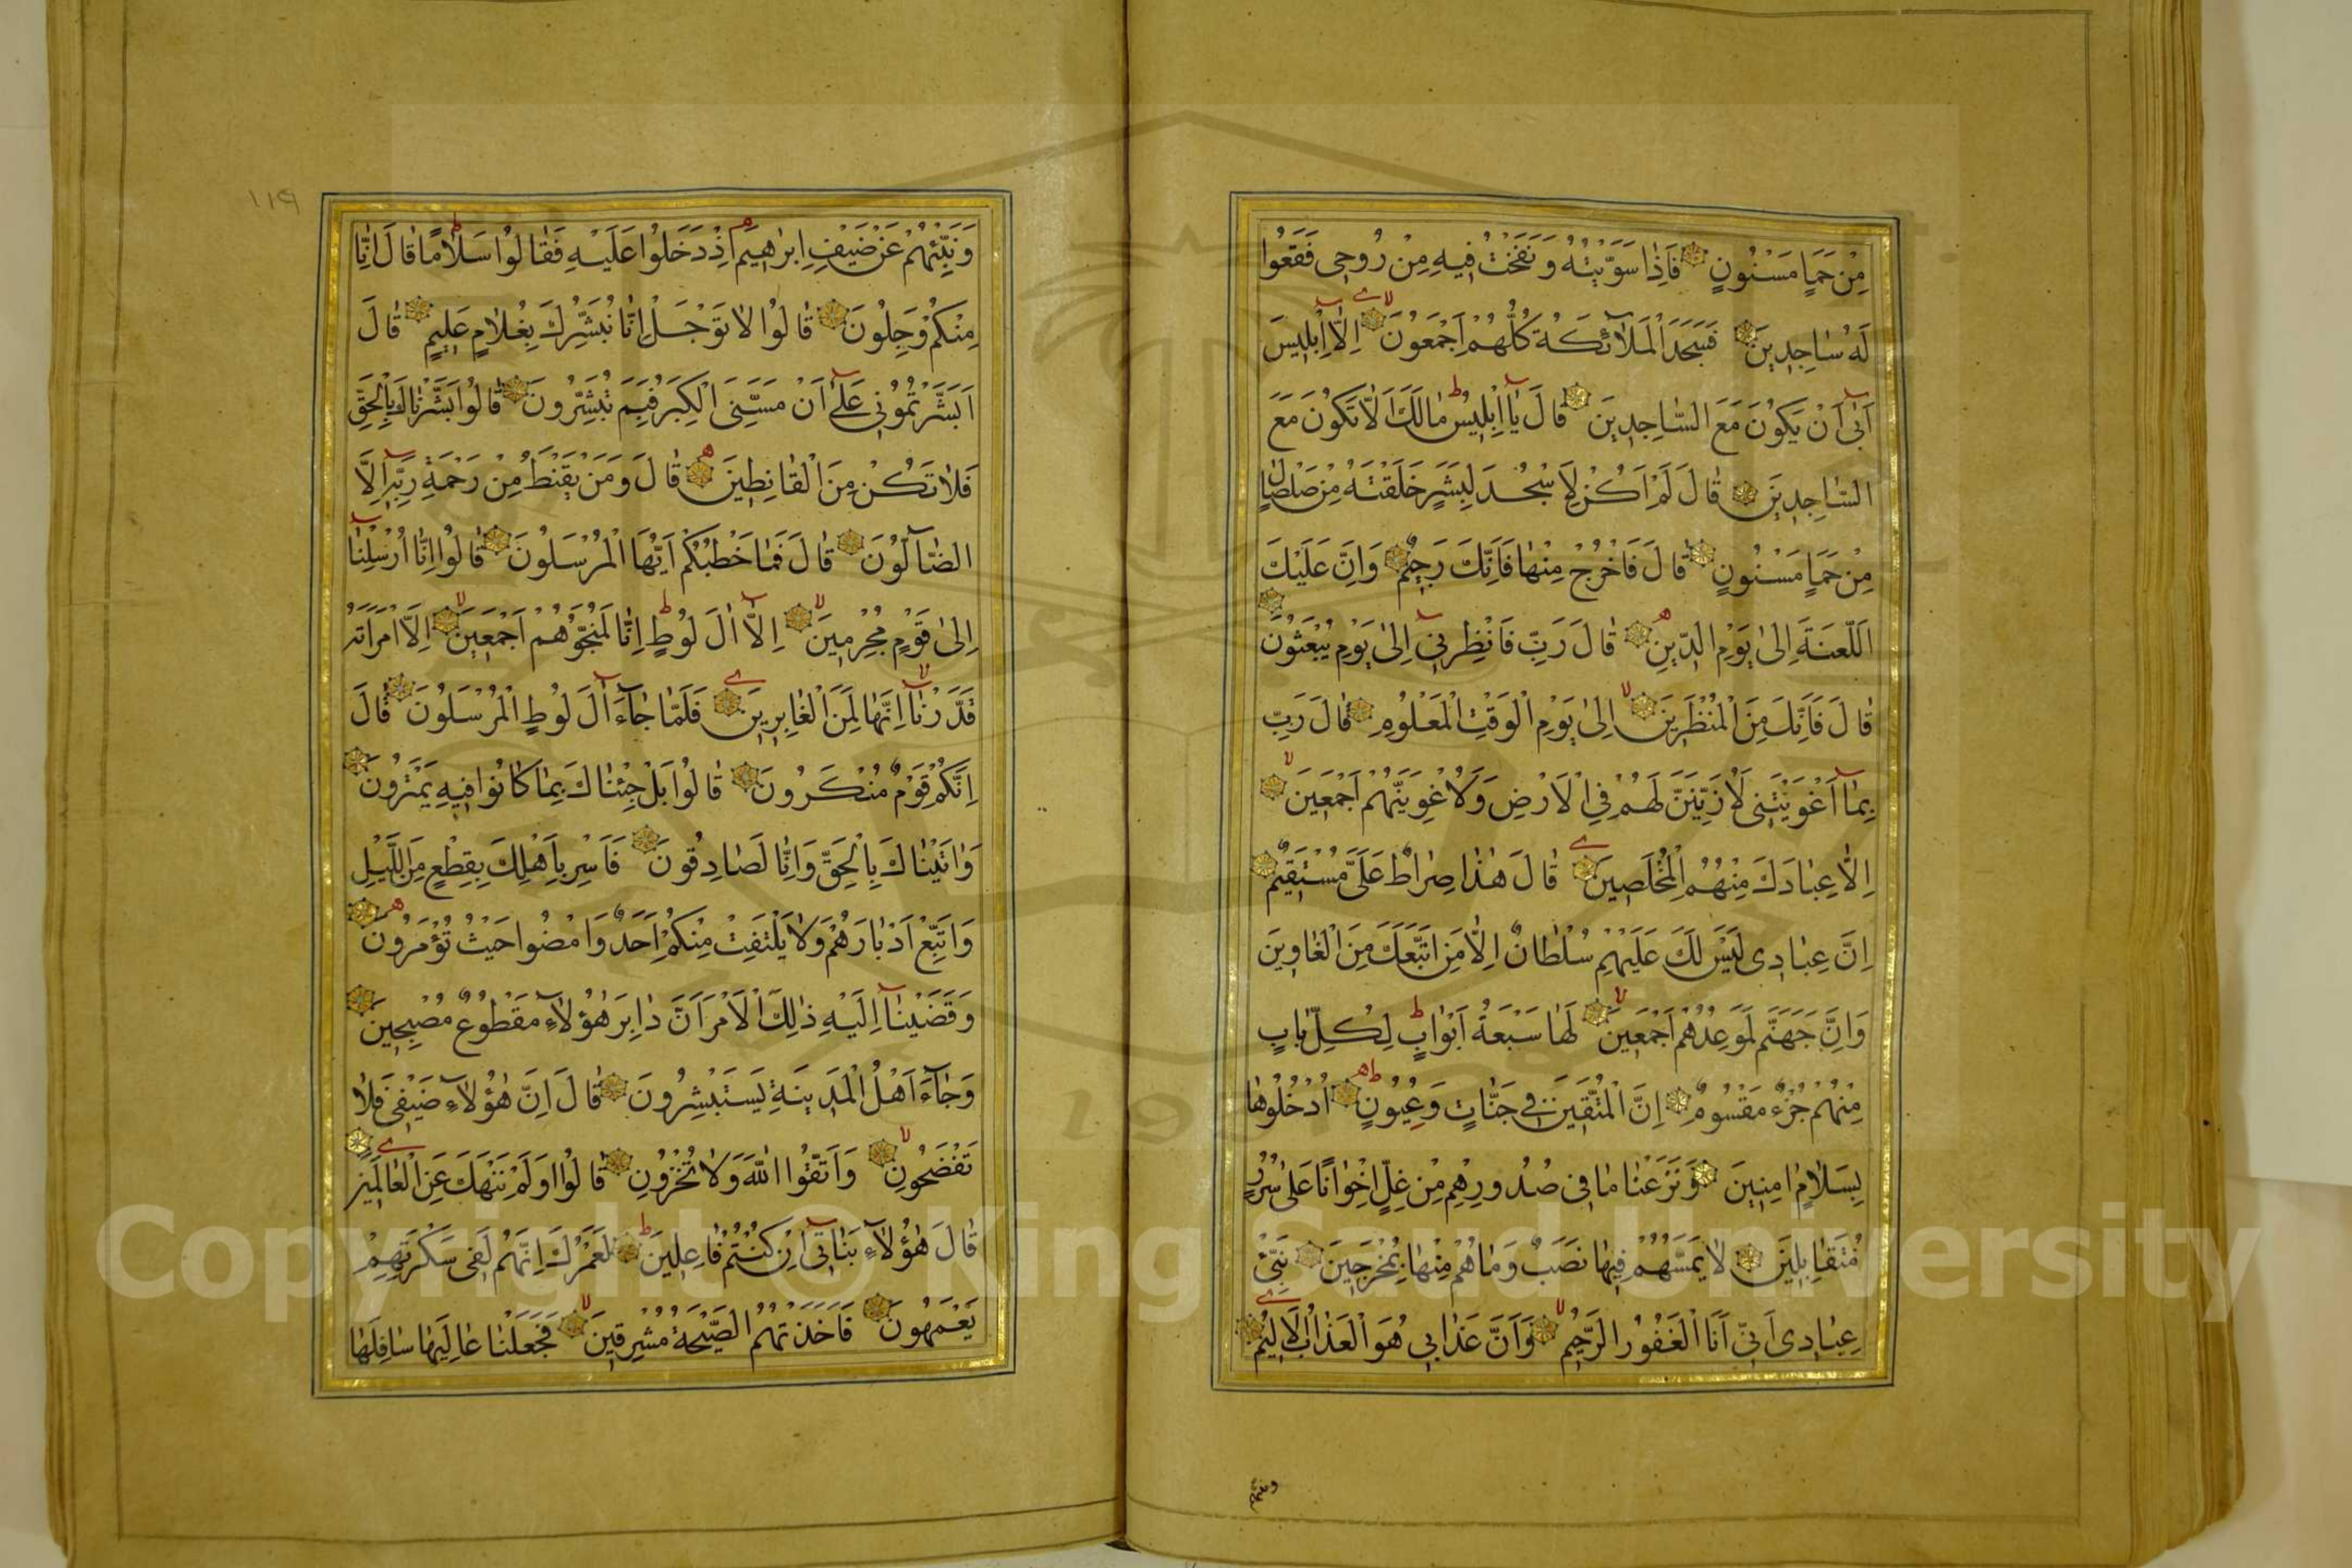 مِنْ حَمَإٍ مَسْنُونٍ فَاِذَا سَوَّيْتُهُ وَنَفَخْتُ فِيهِ مِنْ رُوحِى فَقَعُوا
لَهُ سَاجِدِينَ فَسَجَدَ الْمَلَآئِكَةُ كُلُّهُمْ اَجْمَعُونَ اِلَّآ اِبْلِيسَ
اَبٰىٓ اَنْ يَكُونَ مَعَ السَّاجِدِينَ قَالَ يَآ اِبْلِيسُ مَالَكَ اَلَّا تَكُونَ مَعَ
السَّاجِدِينَ قَالَ لَمْ اَكُنْ لِاَسْجُدَ لِبَشَرٍ خَلَقْتَهُ مِنْ صَلْصَالٍ
مِنْ حَمَإٍ مَسْنُونٍ قَالَ فَاخْرُجْ مِنْهَا فَاِنَّكَ رَجِيمٌ وَاِنَّ عَلَيْكَ
اَللَّعْنَةَ اِلٰى يَوْمِ الدِّينِ قَالَ رَبِّ فَانْظِرْنِىٓ اِلٰى يَوْمِ يُبْعَثُونَ
قَالَ فَاِنَّكَ مِنَ الْمُنْظَرِينَ اِلٰى يَوْمِ الْوَقْتِ الْمَعْلُومِ قَالَ رَبِّ
بِمَآ اَغْوَيْتَنِى لَاُزَيِّنَنَّ لَهُمْ فِى الْاَرْضِ وَلَاُغْوِيَنَّهُمْ اَجْمَعِينَ
اِلَّا عِبَادَكَ مِنْهُمُ الْمُخْلَصِينَ قَالَ هٰذَا صِرَاطٌ عَلَىَّ مُسْتَقِيمٌ
اِنَّ عِبَادِى لَيْسَ لَكَ عَلَيْهِمْ سُلْطَانٌ اِلَّا مَنِ اتَّبَعَكَ مِنَ الْغَاوِينَ
وَاِنَّ جَهَنَّمَ لَمَوْعِدُهُمْ اَجْمَعِينَ لَهَا سَبْعَةُ اَبْوَابٍ لِكُلِّ بَابٍ
مِنْهُمْ جُزْءٌ مَقْسُومٌ اِنَّ الْمُتَّقِينَ فِى جَنَّاتٍ وَعُيُونٍ اُدْخُلُوهَا
بِسَلَامٍ اٰمِنِينَ وَنَزَعْنَا مَا فِى صُدُورِهِمْ مِنْ غِلٍّ اِخْوَانًا عَلٰى سُرُرٍ
مُتَقَابِلِينَ لَا يَمَسُّهُمْ فِيهَا نَصَبٌ وَمَا هُمْ مِنْهَا بِمُخْرَجِينَ نَبِّئْ
عِبَادِى اَنِّى اَنَا الْغَفُورُ الرَّحِيمُ وَاَنَّ عَذَابِى هُوَ الْعَذَابُ الْاَلِيمُ
ونبئهم
١١٩
وَنَبِّئْهُمْ عَنْ ضَيْفِ اِبْرٰهِيمَ اِذْ دَخَلُوا عَلَيْهِ فَقَالُوا سَلَامًا قَالَ اِنَّا
مِنْكُمْ وَجِلُونَ قَالُوا لَا تَوْجَلْ اِنَّا نُبَشِّرُكَ بِغُلَامٍ عَلِيمٍ قَالَ
اَبَشَّرْتُمُونِى عَلٰىٓ اَنْ مَسَّنِىَ الْكِبَرُ فَبِمَ تُبَشِّرُونَ قَالُوا بَشَّرْنَاكَ بِالْحَقِّ
فَلَا تَكُنْ مِنَ الْقَانِطِينَ قَالَ وَمَنْ يَقْنَطُ مِنْ رَحْمَةِ رَبِّهٖٓ اِلَّا
الضَّآلُّونَ قَالَ فَمَا خَطْبُكُمْ اَيُّهَا الْمُرْسَلُونَ قَالُوا اِنَّآ اُرْسِلْنَآ
اِلٰى قَوْمٍ مُجْرِمِينَ اِلَّآ اٰلَ لُوطٍ اِنَّا لَمُنَجُّوهُمْ اَجْمَعِينَ اِلَّا امْرَاَتَهُ
قَدَّرْنَآ اِنَّهَا لَمِنَ الْغَابِرِينَ فَلَمَّا جَآءَ اٰلَ لُوطٍ الْمُرْسَلُونَ قَالَ
اِنَّكُمْ قَوْمٌ مُنْكَرُونَ قَالُوا بَلْ جِئْنَاكَ بِمَا كَانُوا فِيهِ يَمْتَرُونَ
وَاٰتَيْنَاكَ بِالْحَقِّ وَاِنَّا لَصَادِقُونَ فَاَسْرِ بِاَهْلِكَ بِقِطْعٍ مِنَ اللَّيْلِ
وَاتَّبِعْ اَدْبَارَهُمْ وَلَا يَلْتَفِتْ مِنْكُمْ اَحَدٌ وَامْضُوا حَيْثُ تُؤْمَرُونَ
وَقَضَيْنَآ اِلَيْهِ ذٰلِكَ الْاَمْرَ اَنَّ دَابِرَ هٰٓؤُلَآءِ مَقْطُوعٌ مُصْبِحِينَ
وَجَآءَ اَهْلُ الْمَدِينَةِ يَسْتَبْشِرُونَ قَالَ اِنَّ هٰٓؤُلَآءِ ضَيْفِى فَلَا
تَفْضَحُونِ وَاتَّقُوا اللّٰهَ وَلَا تُخْزُونِ قَالُوا اَوَلَمْ نَنْهَكَ عَنِ الْعَالَمِينَ
قَالَ هٰٓؤُلَآءِ بَنَاتِىٓ اِنْ كُنْتُمْ فَاعِلِينَ لَعَمْرُكَ اِنَّهُمْ لَفِى سَكْرَتِهِمْ
يَعْمَهُونَ فَاَخَذَتْهُمُ الصَّيْحَةُ مُشْرِقِينَ فَجَعَلْنَا عَالِيَهَا سَافِلَهَا
Copyright © King Saud University